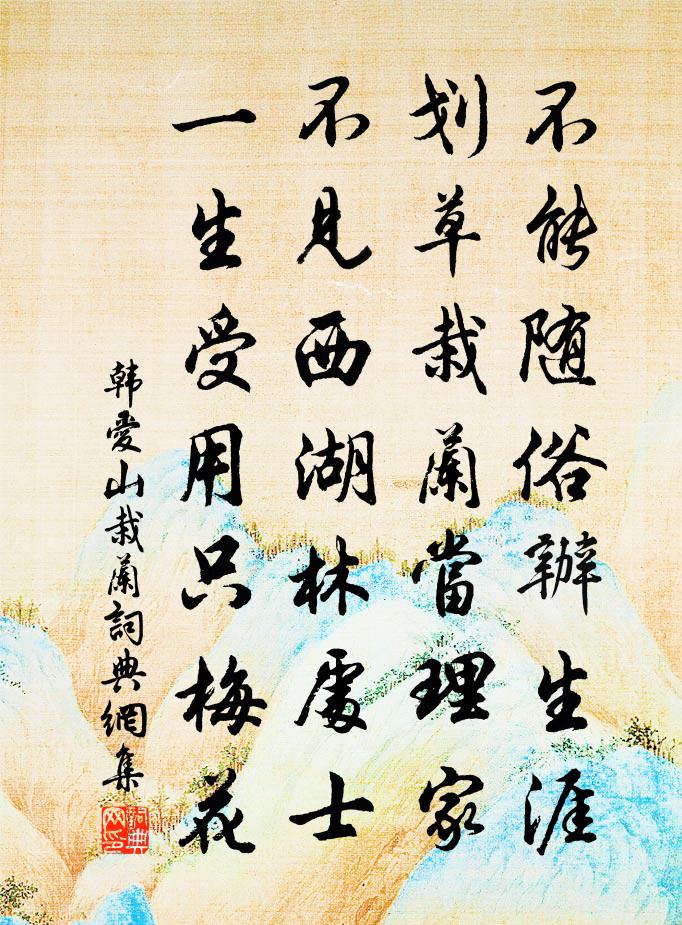 不能随俗辦生涯
划草栽蘭當理家
不見西湖林處士
一生受用只梅花
韩愛山栽蘭詞典網集
詞典网印